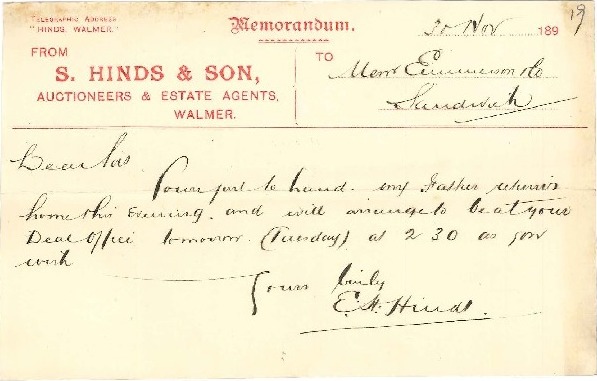 TELEGRAPHIC ADDRESS
"HINDS, WALMER."
Memorandum.
30 Nov 189
19
FROM
S. HINDS & SON,
AUCTIONEERS & ESTATE AGENTS,
WALMER.
TO
Messrs Emmerson & Co
Sandwich
Dear Sirs
Yours just to hand. my Father returns
home this Evening. and will arrange to be at your
Deal Office tomorrow (Tuesday) at 2 30 as you
wish
Yours truly
E. Hinds.